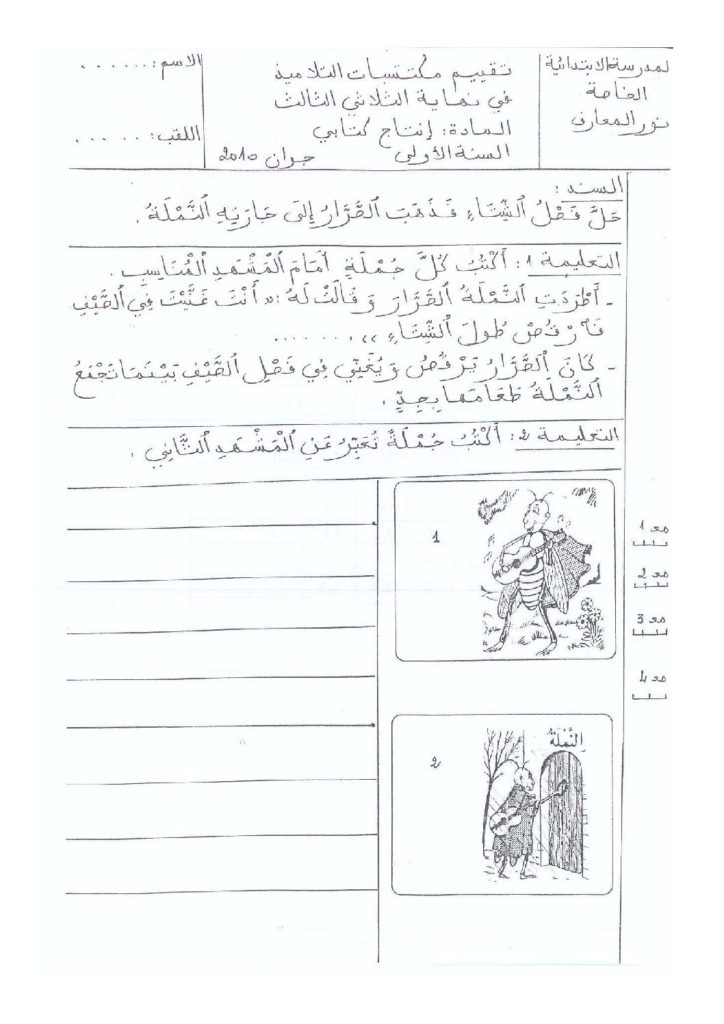 لمدرسة الابتدائية
الخاصة
نور المعارف
تقييم مكتسبات التلاميذ
في نهاية الثلاثي الثالث
المادة: إنتاج كتابي
السنة الأولى جوان 2010
الاسم: ......
اللقب: ......
السند:
حَلَّ فَصْلُ ٱلشِّتَاءِ فَذَهَبَ ٱلصَّرَّارُ إِلَى جَارَتِهِ ٱلنَّمْلَةُ.
التعليمة 1: أَكْتُبُ كُلَّ جُمْلَةٍ أَمَامَ ٱلْمَشْهَدِ ٱلْمُنَاسِبِ.
- أَطْرَدَتِ ٱلنَّمْلَةُ ٱلصَّرَّارَ وَقَالَتْ لَهُ: «أَنْتَ غَنَّيْتَ فِي ٱلصَّيْفِ
فَٱرْقُصْ طُولَ ٱلشِّتَاءِ»........
- كَانَ ٱلصَّرَّارُ يَرْقُصُ وَيُغَنِّي فِي فَصْلِ ٱلصَّيْفِ بَيْنَمَا تَجْمَعُ
ٱلنَّمْلَةُ طَعَامَهَا بِجِدٍّ.
التعليمة 2: أَكْتُبُ جُمْلَةً تُعَبِّرُ عَنِ ٱلْمَشْهَدِ ٱلثَّانِي.
1
مع 1
مع 2
مع 3
مع 4
2
اَلنَّمْلَةُ